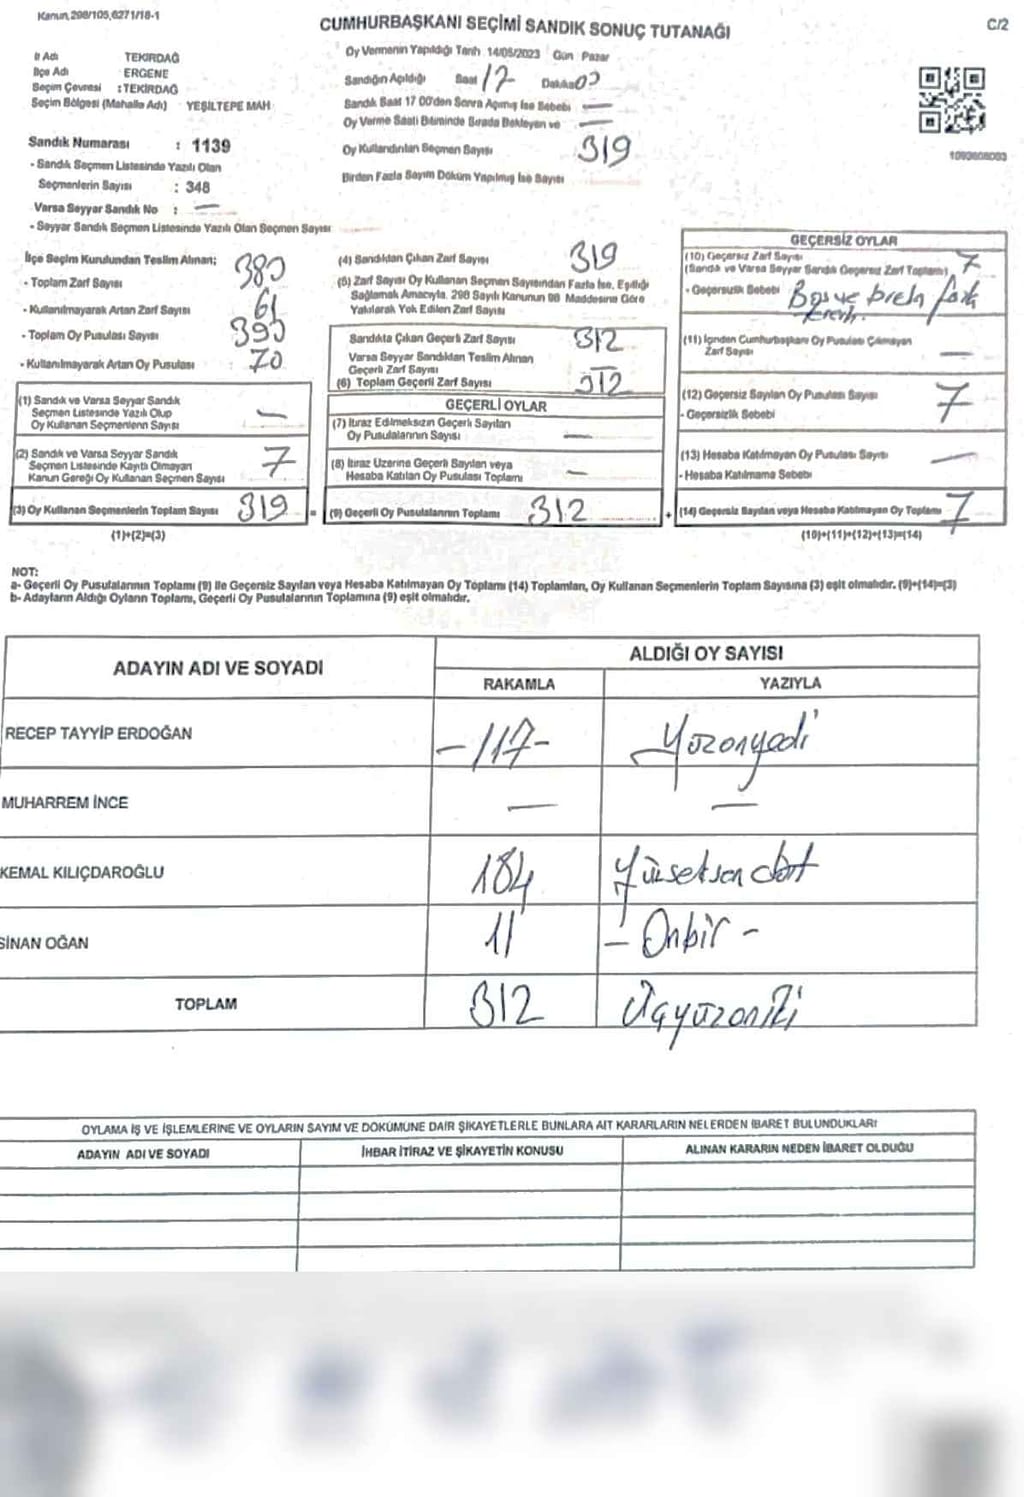 Kanun,298/105,6271/18-1
CUMHURBAŞKANI SEÇİMİ SANDIK SONUÇ TUTANAĞI
C/2
İl Adı TEKİRDAĞ
İlçe Adı ERGENE
Seçim Çevresi : TEKİRDAĞ
Seçim Bölgesi (Mahalle Adı) YEŞİLTEPE MAH
Sandık Numarası : 1139
- Sandık Seçmen Listesinde Yazılı Olan
Seçmenlerin Sayısı : 348
Varsa Seyyar Sandık No : —
- Seyyar Sandık Seçmen Listesinde Yazılı Olan Seçmen Sayısı
Oy Vermenin Yapıldığı Tarih 14/05/2023 Gün Pazar
Sandığın Açıldığı Saat 17 Dakika 00
Sandık Saat 17 00'den Sonra Açılmış İse Sebebi —
Oy Verme Saati Bitiminde Sırada Bekleyen ve —
Oy Kullandırılan Seçmen Sayısı 319
Birden Fazla Sayım Döküm Yapılmış İse Sayısı
İlçe Seçim Kurulundan Teslim Alınan;
- Toplam Zarf Sayısı 380
- Kullanılmayarak Artan Zarf Sayısı 61
- Toplam Oy Pusulası Sayısı 390
- Kullanılmayarak Artan Oy Pusulası : 70
(1) Sandık ve Varsa Seyyar Sandık
Seçmen Listesinde Yazılı Olup
Oy Kullanan Seçmenlerin Sayısı —
(2) Sandık ve Varsa Seyyar Sandık
Seçmen Listesinde Kayıtlı Olmayan
Kanun Gereği Oy Kullanan Seçmen Sayısı 7
(3) Oy Kullanan Seçmenlerin Toplam Sayısı 319
(1)+(2)=(3)
(4) Sandıktan Çıkan Zarf Sayısı 319
(5) Zarf Sayısı Oy Kullanan Seçmen Sayısından Fazla İse, Eşitliği
Sağlamak Amacıyla, 298 Sayılı Kanunun 98 Maddesine Göre
Yakılarak Yok Edilen Zarf Sayısı
Sandıkta Çıkan Geçerli Zarf Sayısı 312
Varsa Seyyar Sandıktan Teslim Alınan
Geçerli Zarf Sayısı —
(6) Toplam Geçerli Zarf Sayısı 312
GEÇERLİ OYLAR
(7) İtiraz Edilmeksizin Geçerli Sayılan
Oy Pusulalarının Sayısı —
(8) İtiraz Üzerine Geçerli Sayılan veya
Hesaba Katılan Oy Pusulası Toplamı —
= (9) Geçerli Oy Pusulalarının Toplamı 312
GEÇERSİZ OYLAR
(10) Geçersiz Zarf Sayısı
(Sandık ve Varsa Seyyar Sandık Geçersiz Zarf Toplamı) 7
- Geçersizlik Sebebi Boş ve birden fazla
(11) İçinden Cumhurbaşkanı Oy Pusulası Çıkmayan
Zarf Sayısı —
(12) Geçersiz Sayılan Oy Pusulası Sayısı 7
- Geçersizlik Sebebi
(13) Hesaba Katılmayan Oy Pusulası Sayısı —
- Hesaba Katılmama Sebebi
+ (14) Geçersiz Sayılan veya Hesaba Katılmayan Oy Toplamı 7
(10)+(11)+(12)+(13)=(14)
NOT:
a- Geçerli Oy Pusulalarının Toplamı (9) ile Geçersiz Sayılan veya Hesaba Katılmayan Oy Toplamı (14) Toplamları, Oy Kullanan Seçmenlerin Toplam Sayısına (3) eşit olmalıdır. (9)+(14)=(3)
b- Adayların Aldığı Oyların Toplamı, Geçerli Oy Pusulalarının Toplamına (9) eşit olmalıdır.
ADAYIN ADI VE SOYADI
ALDIĞI OY SAYISI
RAKAMLA YAZIYLA
RECEP TAYYİP ERDOĞAN -117- Yüzonyedi
MUHARREM İNCE — —
KEMAL KILIÇDAROĞLU 184 Yüzseksen dört
SİNAN OĞAN 11 - Onbir -
TOPLAM 312 Üçyüzoniki
OYLAMA İŞ VE İŞLEMLERİNE VE OYLARIN SAYIM VE DÖKÜMÜNE DAİR ŞİKAYETLERLE BUNLARA AİT KARARLARIN NELERDEN İBARET BULUNDUKLARI
ADAYIN ADI VE SOYADI İHBAR İTİRAZ VE ŞİKAYETİN KONUSU ALINAN KARARIN NEDEN İBARET OLDUĞU